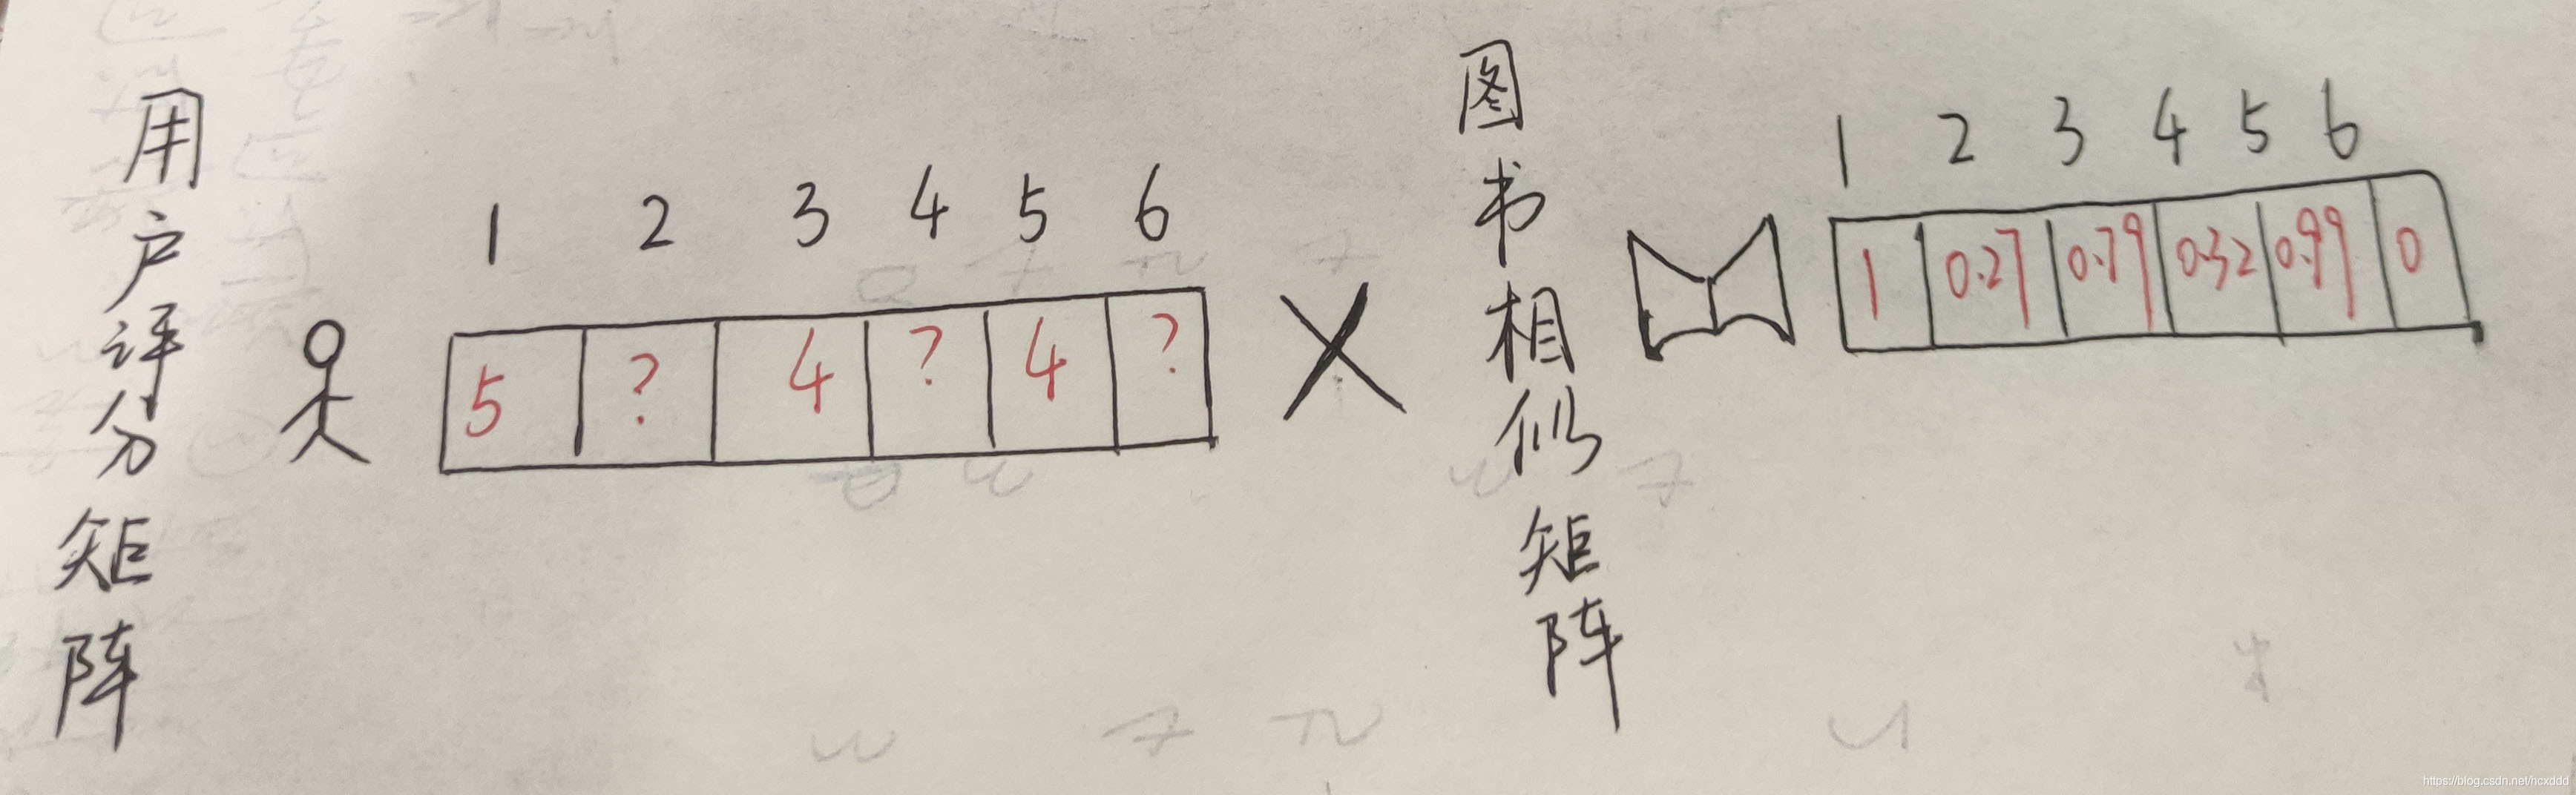 用户评分矩阵
1 2 3 4 5 6
5 ? 4 ? 4 ?
图书相似矩阵
1 2 3 4 5 6
1 0.27 0.79 0.32 0.99 0
https://blog.csdn.net/hcxddd